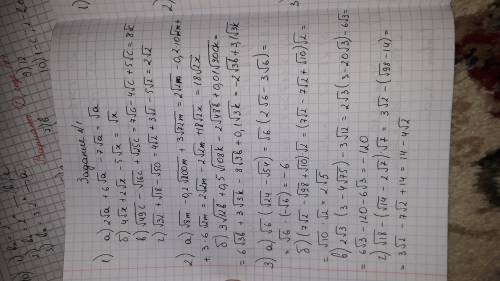 Задание №1
1) а) 2√a + 6√a - 7√a = √a
б) 4√x + 2√x - 5√x = √x
в) √49c - √16c + √25c = 7√c - 4√c + 5√c = 8√c
г) √32 + √18 - √50 = 4√2 + 3√2 - 5√2 = 2√2
2) а) √8m - 0,2√200m + 3√72m = 2√2m - 0,2·10√2m +
+ 3·6√2m = 2√2m - 2√2m + 18√2x = 18√2x
б) 3√12b + 0,5√108k - 2√48b + 0,01√300k =
= 6√3b + 3√3k - 8√3b + 0,1√3k = -2√3b + 3,1√3k
3) а) √6 (√24 - √54) = √6 (2√6 - 3√6) =
= √6 · (-√6) = -6
б) (7√2 - √98 + √10)√2 = (7√2 - 7√2 + √10)√2 =
= √10 · √2 = 2√5
в) 2√3 (3 - 4√75) - 3√12 = 2√3 (3 - 20√3) - 6√3 =
= 6√3 - 120 - 6√3 = -120
г) √18 - (√14 - 2√7)√7 = 3√2 - (√98 - 14) =
= 3√2 - 7√2 + 14 = 14 - 4√2